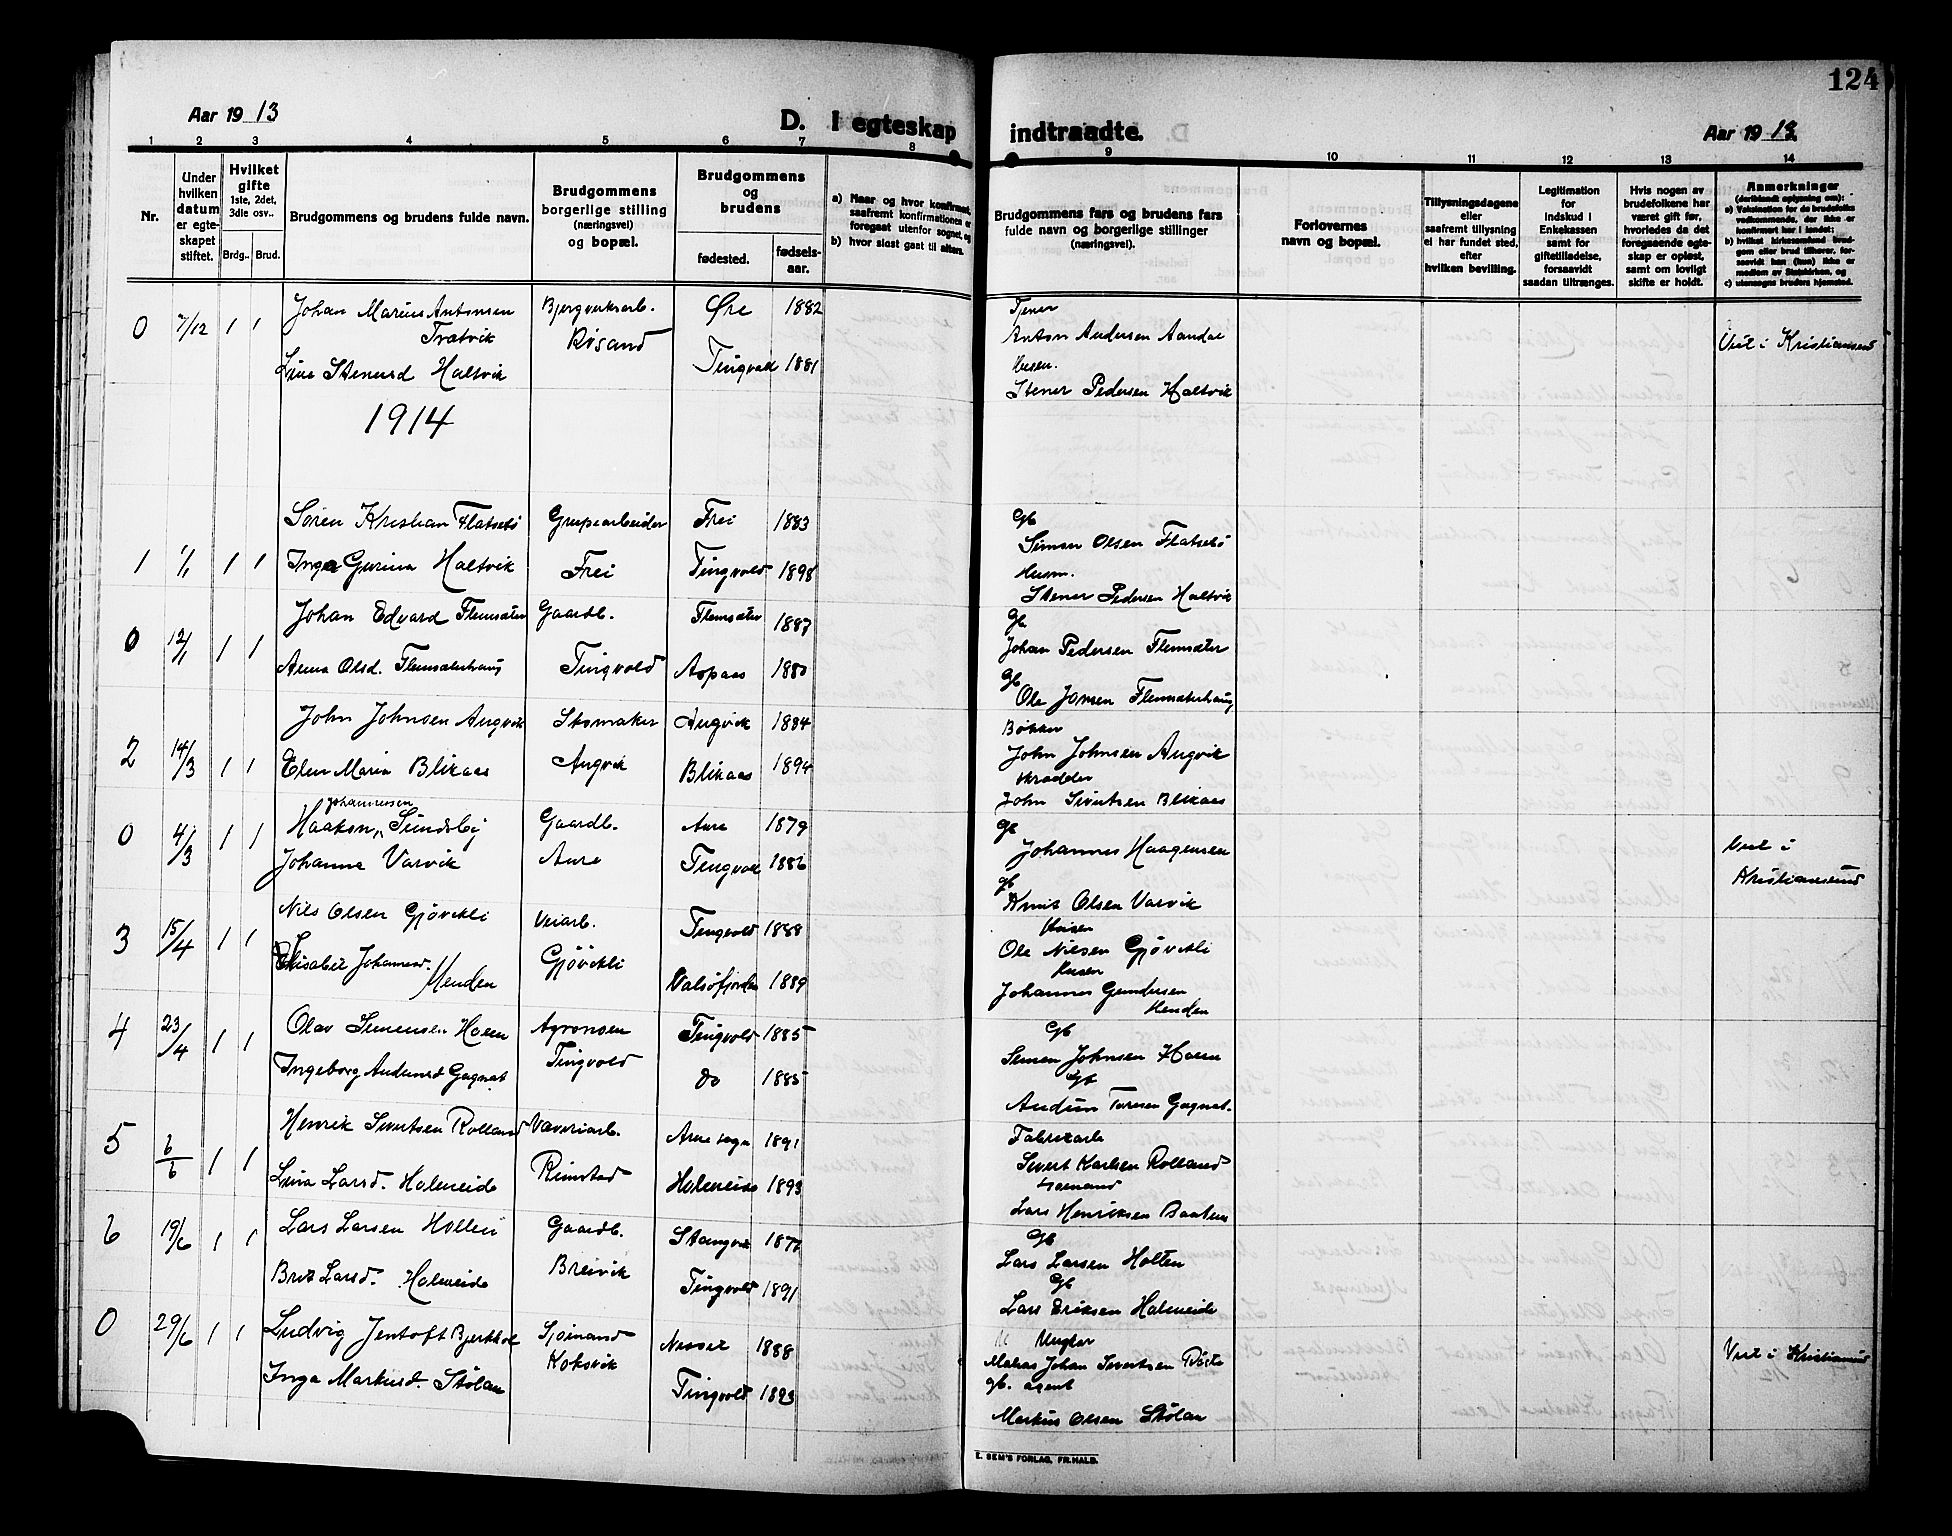 124
Aar 19 13
D. I egteskap indtraadte.
Aar 19 13
1 2 3 4 5 6 7 8 9 10 11 12 13 14
Nr.
Under hvilken datum er egteskapet stiftet.
Hvilket gifte 1ste, 2det, 3die osv..
Brdg.. Brud.
Brudgommens og brudens fulde navn.
Brudgommens borgerlige stilling (næringsvei) og bopæl.
Brudgommens og brudens
fødested. fødsels-aar.
a) Naar og hvor konfirmt, saafremt konfirmationen er foregaat utenfor sognet, og
b) hvor sidst gaat til alters.
Brudgommens fars og brudens fars fulde navn og borgerlige stillinger (næringsvei).
Forlovernes navn og bopæl.
Tillysningsdagene eller saafremt tillysning ei har fundet sted, efter hvilken bevilling.
Legitimation for indskud i Enkekassen samt for giftetilladelse, forsaavidt saadan tiltrænges.
Hvis nogen av brudefolkene har været gift før, hvorledes da det foregaaende egteskap er opløst, samt om lovligt skifte er holdt.
Anmerkninger (deriblandt oplysning om):
a) Vaksination for de brudefolks vedkommende, der ikke er konfirmert her i landet;
b) hvilket kirkesamfund brudgom eller brud tilhører, forsaavidt han (hun) ikke er medlem av Statskirken, og
c) utensogns bruders hjemsted.
0 7/12 1 1 Johan Marius Antonsen Bjergverksarb. Øre 1882 Tjener
Tratvik Røsand Anton Andersen Aandal Viet i Kristiansund
Line Stenersd Haltvik Tingvold 1881 Husm.
Stener Pedersen Haltvik
1914
Søren Kristian Flatsetø Grubearbeider Frei 1883 Gb
Simon Olsen Flatsetø
1 1/1 1 1 Inga Gurina Haltvik Frei Tingvold 1898 Husm.
Stener Pedersen Haltvik
Johan Edvard Flemsæter Gaardb. Flemsæter 1887 Gb
0 12/1 1 1 Johan Pedersen Flemsæter
Anna Olsd. Flemsæterhaug Tingvold Aspaas 1880 Gb
Ole Jonsen Flemsæterhaug
John Johnsen Angvik Skomaker Angvik 1884 Bøkker
2 14/3 1 1 John Johnsen Angvik
Elen Maria Blikaas Angvik Blikaas 1894 skrædder
John Sivertsen Blikaas
Johannessen
0 4/3 1 1 Haakon Sundsby Gaardb. Aure 1879 Gb
Johannes Haagensen Viet i
Johanna Varvik Aure Tingvold 1886 gb Kristiansund
Knut Olsen Varvik
3 15/4 1 1 Nils Olsen Gjøvikli Veiarb. Tingvold 1888
Ole Nilsen Gjøvikli
Elisabet Johannesd. Henden Gjøvikli Valsøfjorden 1889
Johannes Gundersen Henden
4 23/4 1 1 Olav Simensen Hoem Agronom Tingvold 1885 Gb
Simen Johnsen Hoem
Ingeborg Audunsd Gagnat Tingvold do 1885 Gb
Audun Toresen Gagnat.
5 6/6 1 1 Henrik Sivertsen Rolland Væveriarb. Aure sogn 1891 Fabrikarb
Sivert Karlsen Rolland
Lina Larsd. Holmeide Rimstad Holmeide 1893
Lars Henriksen
6 19/6 1 1 Lars Larsen Holten Gaardb. Stangvik 1877 Gb
Lars Larsen Holten
Brit Larsd. Holmeide Breivik Tingvold 1891 Gb
Lars Eriksen Holmeide
0 29/6 1 1 Ludvig Jentoft Sjømand Nesset 1888
Johan Sivertsen Viet i Kristiansund
Inga Markusd. Stølan Koksvik Tingvold 1893 gb. agent
Markus Olsen Stølan
E. SEM'S FORLAG, FR.HALD.